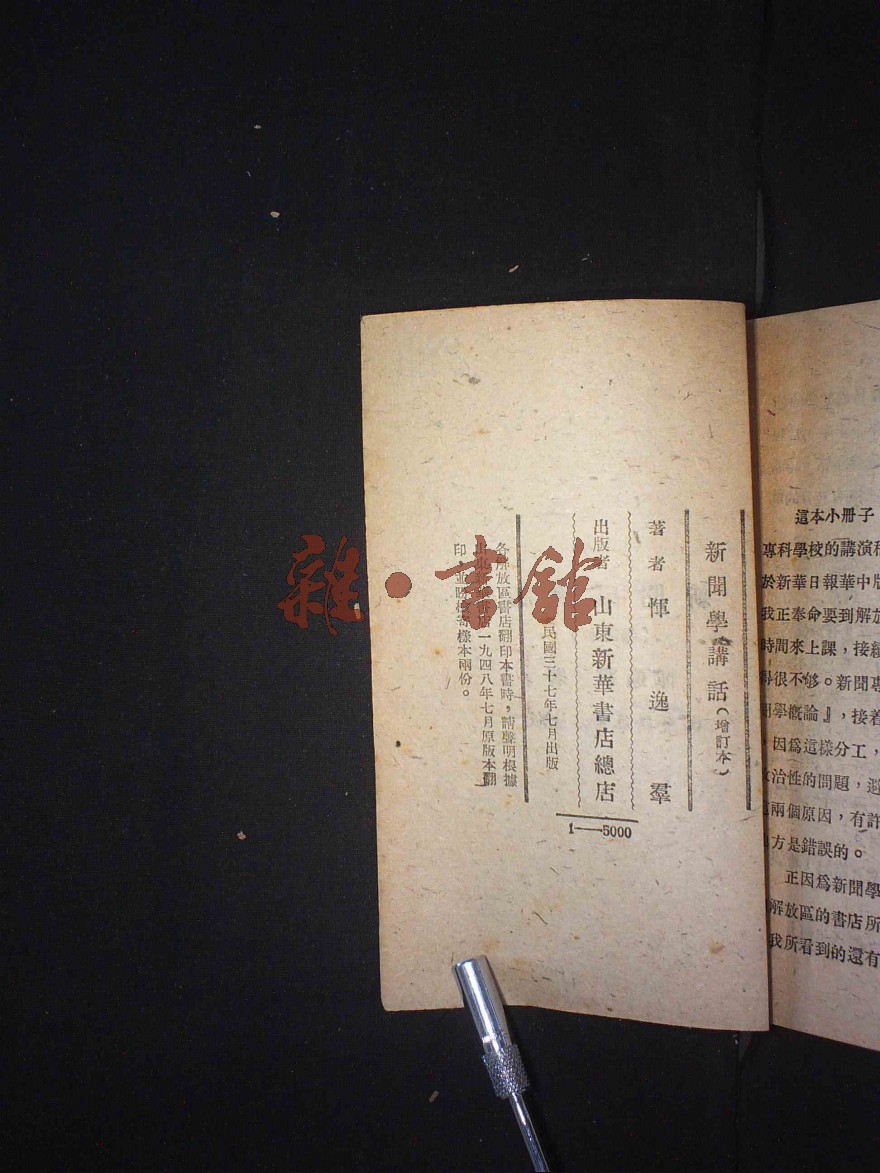 新聞學講話（增訂本）
著者 惲逸羣
出版者 山東新華書店總店
民國三十七年七月出版
1——5000
各解放區書店翻印本書時，請聲明根據
書店一九四八年七月原版本翻
印，並 寄樣本兩份。
這本小冊子
專科學校的講演
於新華日報華中
我正奉命要到解放
時間來上課，接
得很不够。新聞專
聞學概論』，接着
，因爲這樣分工，
治性的問題，
兩個原因，有許
方是錯誤的。
正因爲新聞學
解放區的書店所
我所看到的還有
雜·書館